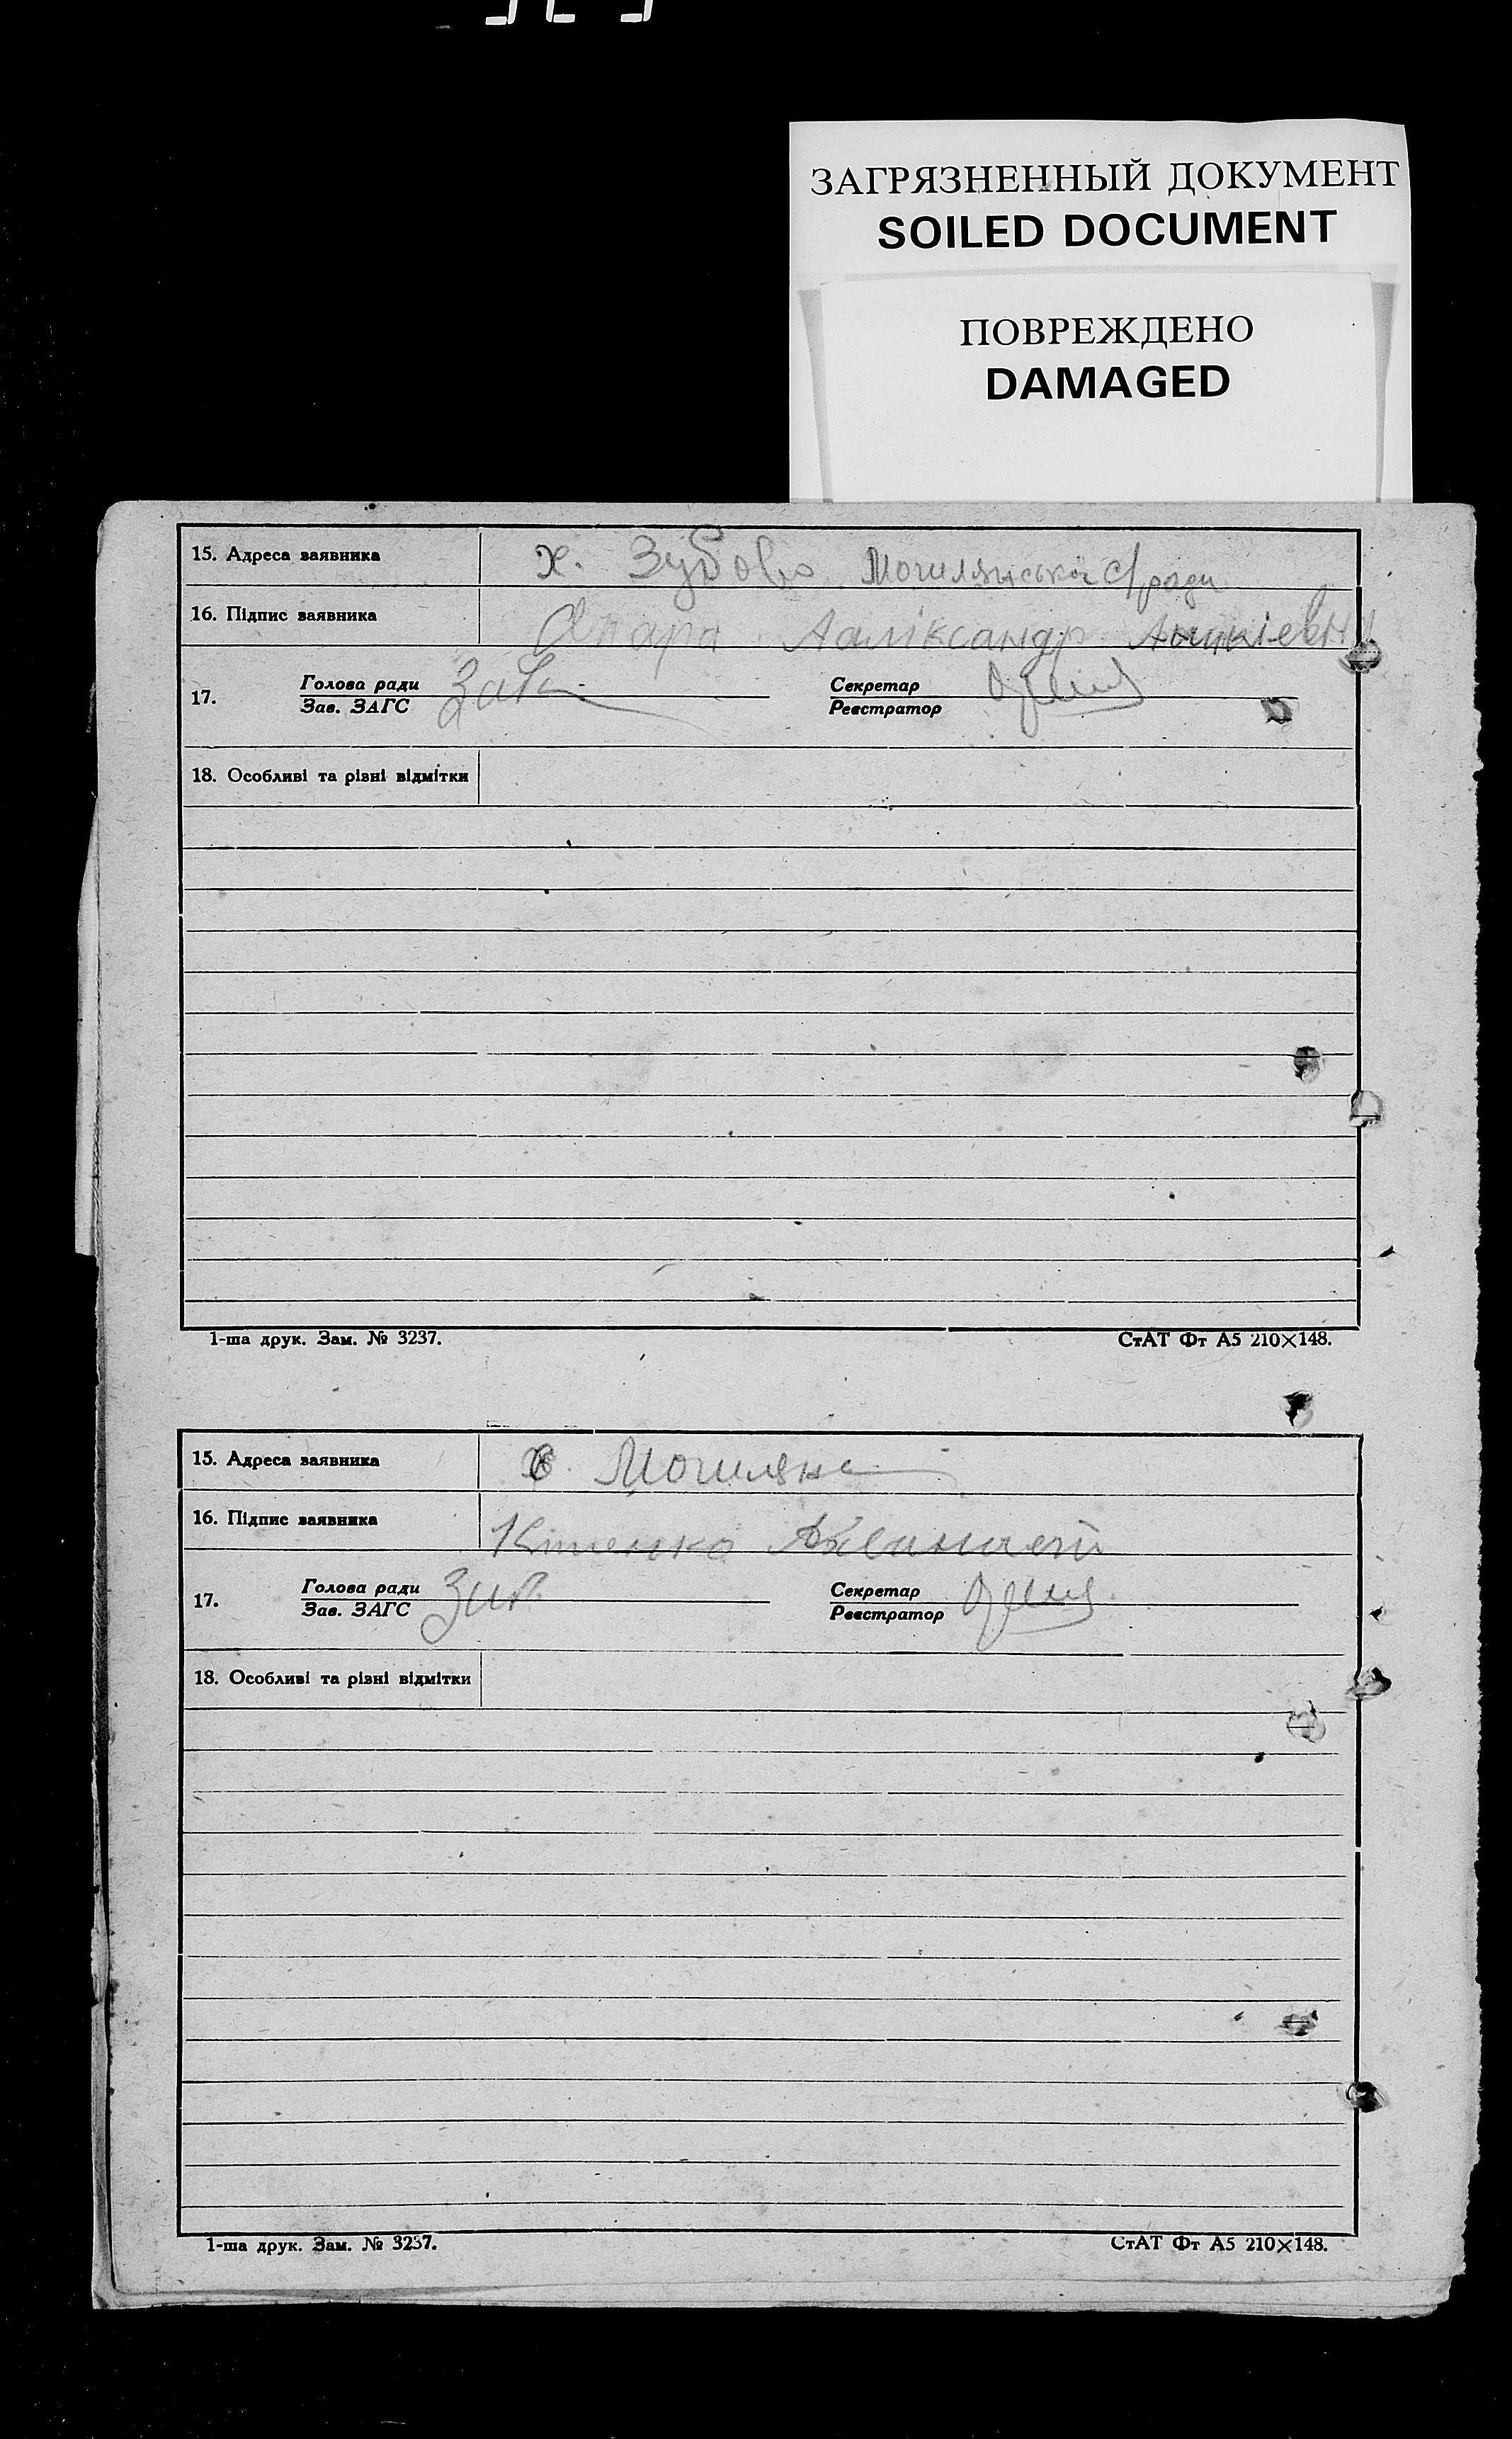 ЗАГРЯЗНЕННЫЙ ДОКУМЕНТ
SOILED DOCUMENT
ПОВРЕЖДЕНО
DAMAGED
15. Адреса заявника х. Зубово Могилянської с/ради
16. Підпис заявника
17. Голова ради Секретар
Зав. ЗАГС Реєстратор
18. Особливі та різні відмітки
1-ша друк. Зам. № 3237. СтАТ Фт А5 210×148.
15. Адреса заявника с. Могиляни
16. Підпис заявника
17. Голова ради Секретар
Зав. ЗАГС Реєстратор
18. Особливі та різні відмітки
1-ша друк. Зам. № 3237. СтАТ Фт А5 210×148.